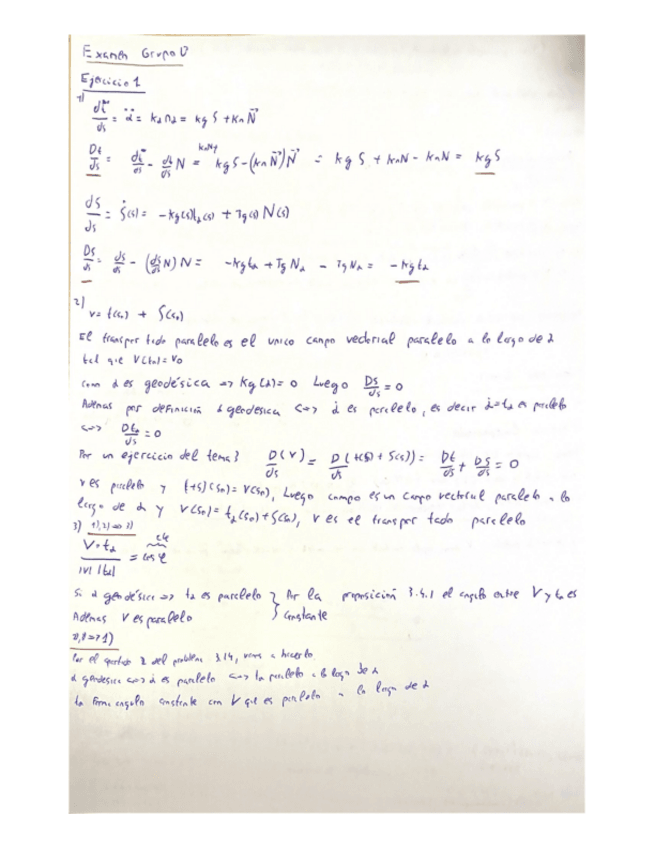 Examen Grupo D
Ejercicio 1
1) dt/ds = α̈ = kα nα = kg S + kn N
Dt/ds = dt/ds - dt/ds N = kg S - (kn N) N = kg S + kn N - kn N = kg S
dS/ds = Ṡ(s) = -kg(s) tα(s) + Tg(s) N(s)
DS/ds = dS/ds - (dS/ds N) N = -kg tα + Tg Nα - Tg Nα = -kg tα
2) v = t(s₀) + S(s₀)
El transportado paralelo es el unico campo vectorial paralelo a lo largo de α
tal que V(t₀) = v₀
como α es geodésica => kg(α) = 0 Luego DS/ds = 0
Ademas por definición α geodesica <=> α̇ es paralelo, es decir α̇ = tα es paralelo
<=> Dtα/ds = 0
Por un ejercicio del tema 3 D(V)/ds = D/ds (t(s) + S(s)) = Dt/ds + DS/ds = 0
V es paralelo y (t+S)(s₀) = V(s₀), Luego campo es un campo vectorial paralelo a lo
largo de α y V(s₀) = tα(s₀) + S(s₀), V es el transportado paralelo
3) 1), 2) => 3)
V·tα / |V| |tα| = cos φ
Si α geodésica => tα es paralelo } Por la proposición 3.4.1 el angulo entre V y tα es
Ademas V es paralelo } constante
Por el apartado 2 del problema 3.14, vamos a hacerlo
α geodesica <=> α̇ es paralelo <=> tα paralelo a lo largo de α
tα forma angulo constante con V que es paralelo a lo largo de α